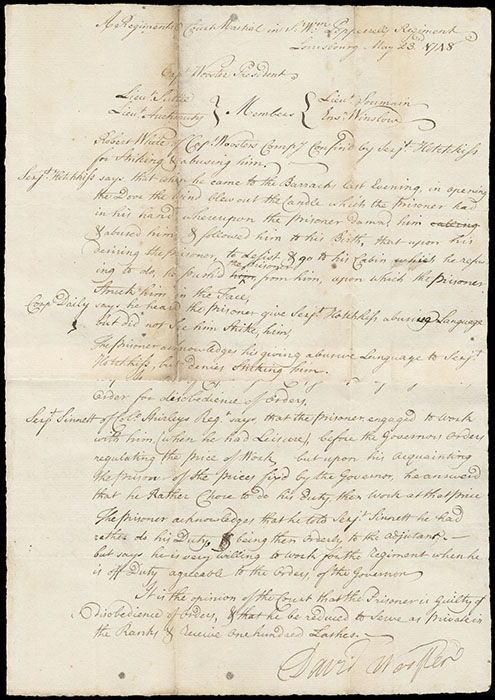 A Regimental Court Martial in Sr. Wm. Pepperell Regiment
Louisburg May 23 1748
Capt Wooster President
Lieut. Lieut. Authority } Members { Lieut. Loumain Ensn. Winslow
Robert White of Cap. Woosters Compy Confin'd by Serjt. Hotchkiss
for Striking & abusing him,
Serjt. Hotchkiss says, that when he came to the Barracks last Evening, in opening
the Dore the Wind blew out the Candle which the prisoner had
in his hand, whereupon the prisoner Damn'd him calling
& abused him, & follow'd him to his Birth, that upon his
desireing the prisoner to desist, & go to his Cabin which he refus
ing to do, he pushed the prisoner from him, upon which the prisoner
Struck him in the Face,
Corpl Daily says, he heard the prisoner give Serjt. Hotchkiss abuseing Language
but did not See him Strike him,
The prisoner acknowledges his giving abusive Language to Serjt.
Hotchkiss, but denies Striking him.
Order for disobedience of Orders.
Serjt. Sinnett of Shirleys Regt. says, that the prisoner engaged to work
with him (when he had Leisure) before the Governors orders
regulating the price of Work, but upon his Acquainting
the prisoner of the prices fix'd by the Governor, he answered
that he Rather Chose to do his Duty then work at that price
The prisoner acknowledges that he told Serjt. Sinnett he had
rather do his Duty, being then Orderly to the Adjutant.—
but says he is very willing to work for the Regiment when he
is off Duty agreable to the Orders, of the Governor
It is the opinion of the Court that the Prisoner is Guilty of
disobedience of Orders, & that he be reduced to Serve as private in
the Ranks & Receive One hundred Lashes.—
David Wooster